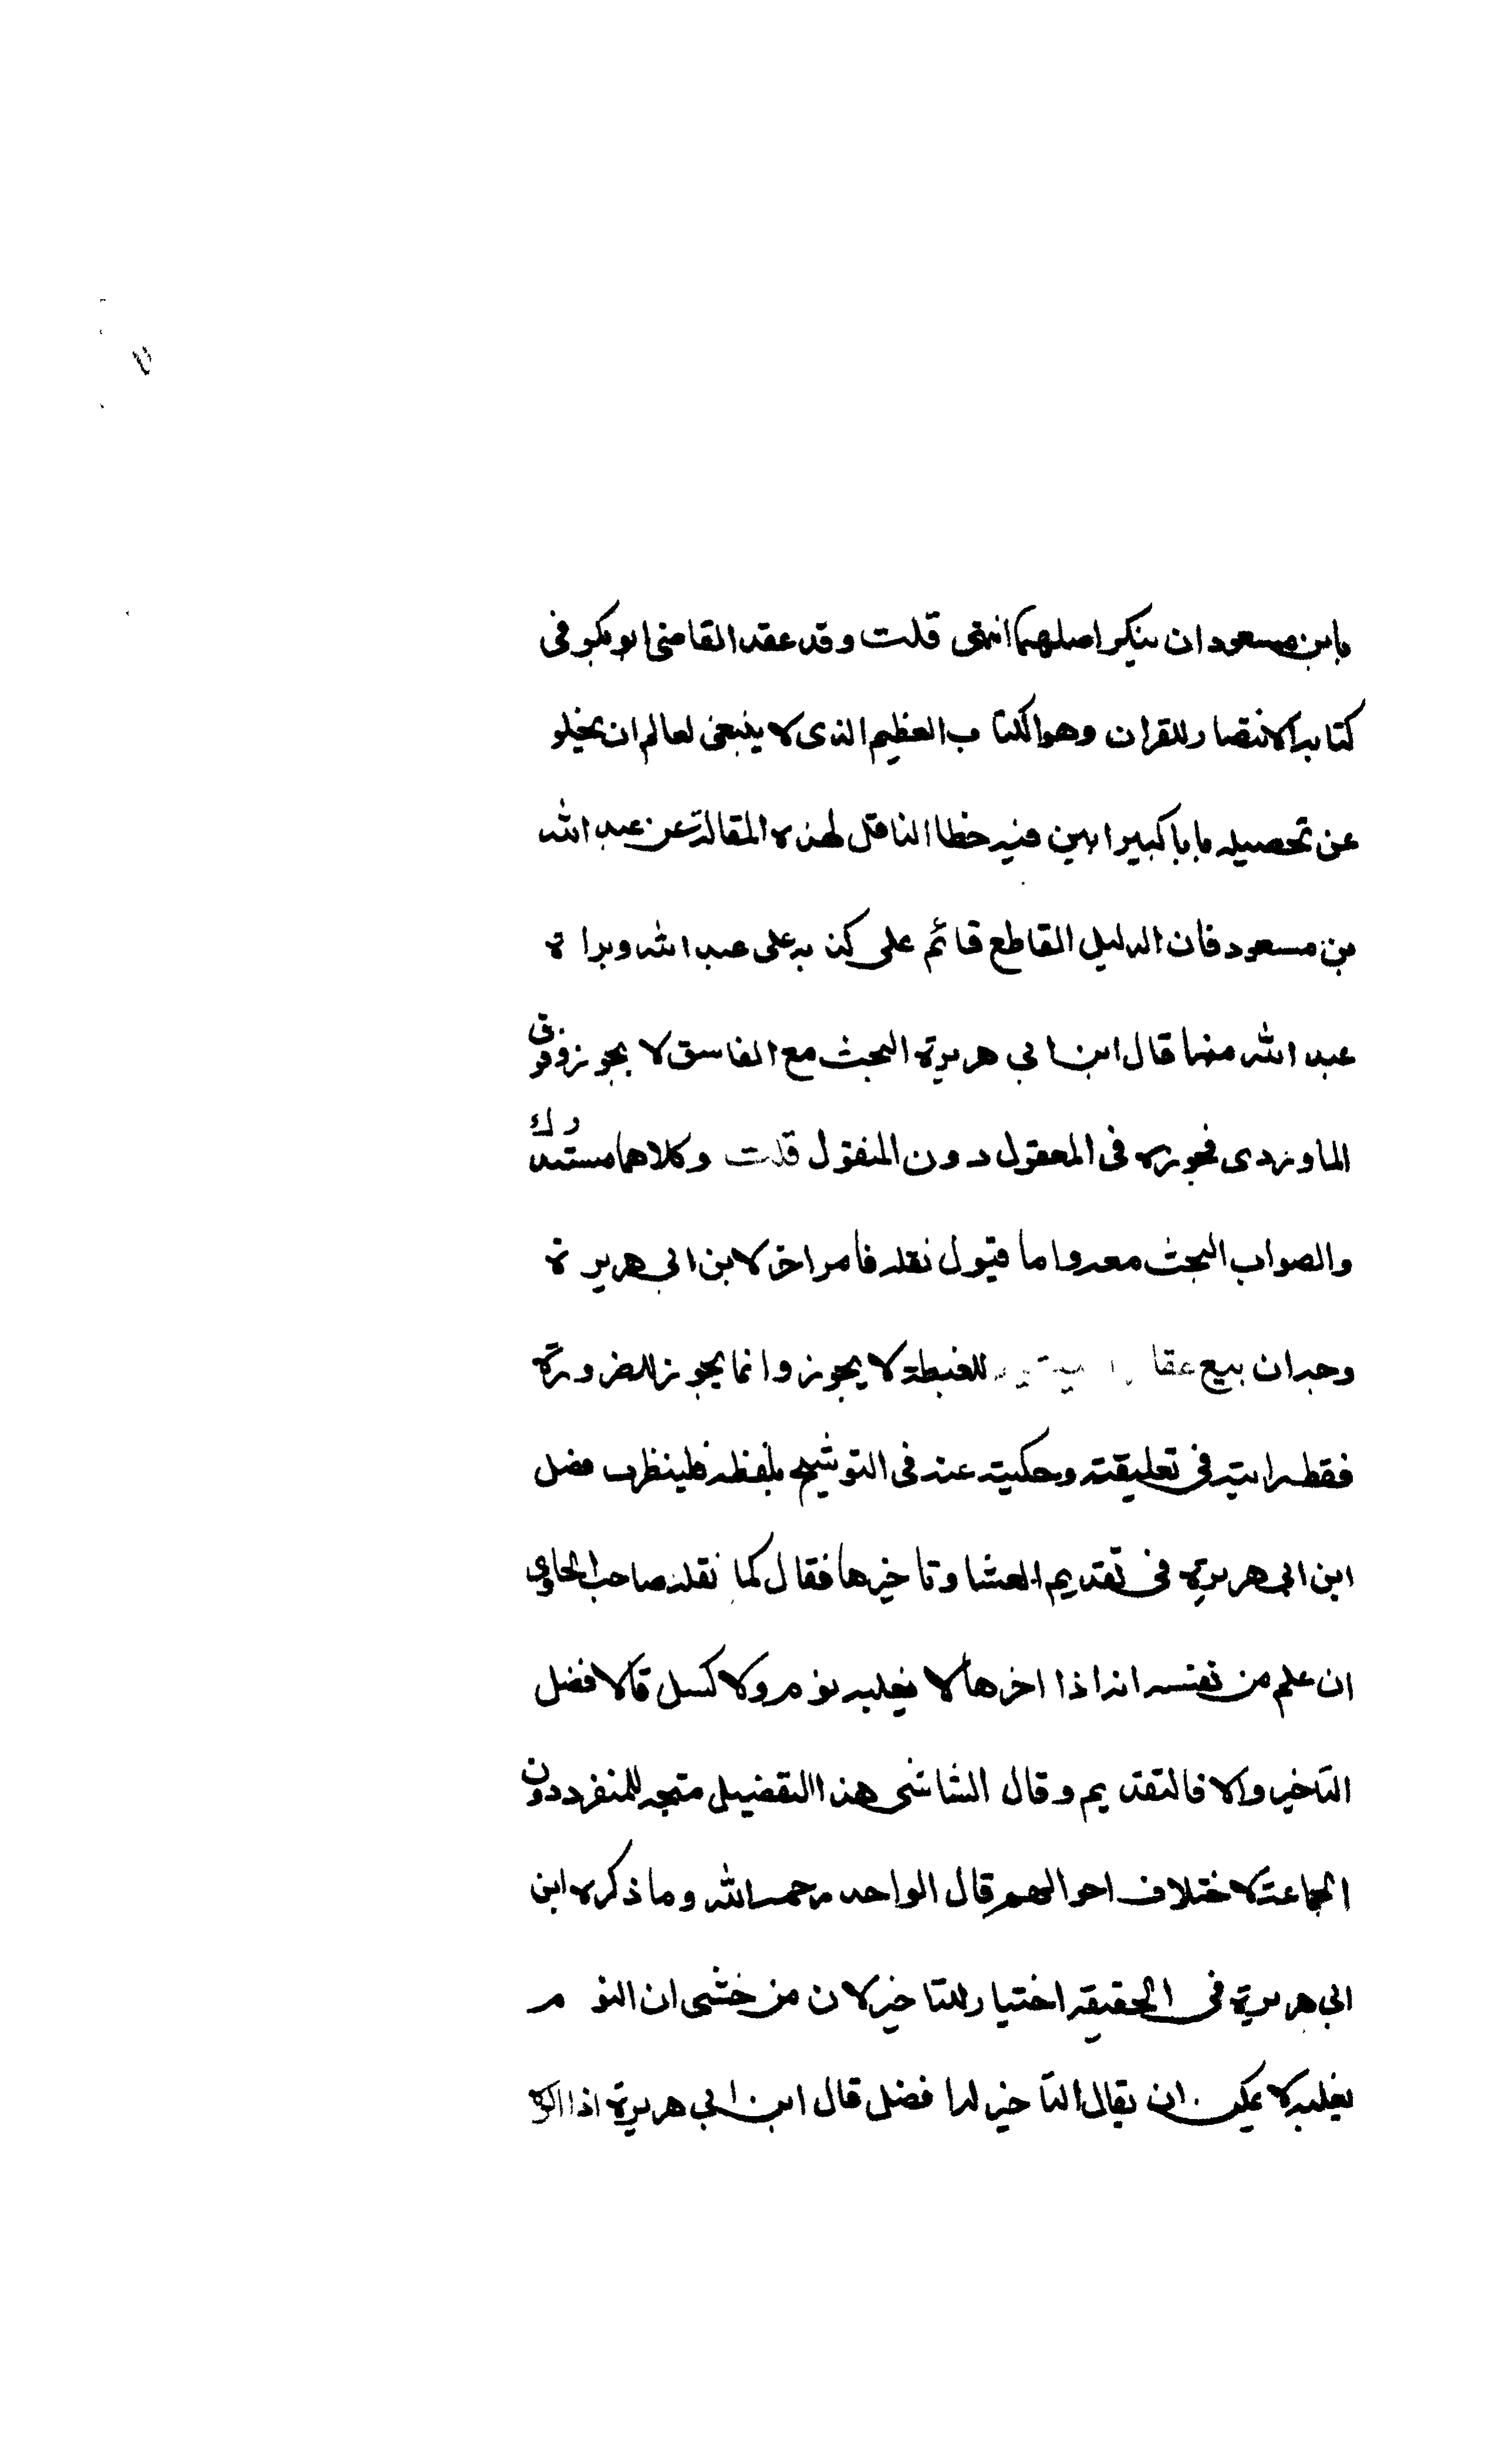 بابن مسعود ان ينكر اصلهما انتهى قلت وقد عقد القاضي ابو بكر في
كتابه الانتصار للقران وهو الكتاب العظيم الذى لا ينبغي لعالم ان يخلو
عن تحصيله بابا كبيرا بين فيه خطا الناقل لهذه المقالة عن عبد الله
بن مسعود فان الدليل القاطع قائم على كذبه على عبد الله وبراة
عبد الله منها قال ابن ابي هريرة البحث مع الفاسق لا يجوز وفرق
الماوردى فجوزه في المعقول دون المنقول قلت وكلاهما مستدرك
والصواب البحث معه واما قبول نقله فامر اخر لابن ابي هريرة
وجه ان بيع عقار اليتيم للغبطة لا يجوز وانما يجوز للضرورة
فقط رايته في تعليقته وحكيته عنه في التوشيح بلفظه فلينظر فصل
ابن ابي هريرة في تقديم العشا وتاخيرها فقال كما نقله صاحب الحاوي
ان علم من نفسه انه اذا اخرها لا يغلبه نوم ولا كسل فالافضل
التاخير والا فالتقديم وقال الشاشى هذا التفضيل متجه للمنفرد دون
الجماعة لاختلاف احوالهم قال الوالد رحمه الله وما ذكره ابن
ابي هريرة في الحقيقه اختيار للتاخير لان من خشى ان النوم
يغلبه لا يمكن ان يقال التاخير له افضل قال ابن ابي هريرة اذا